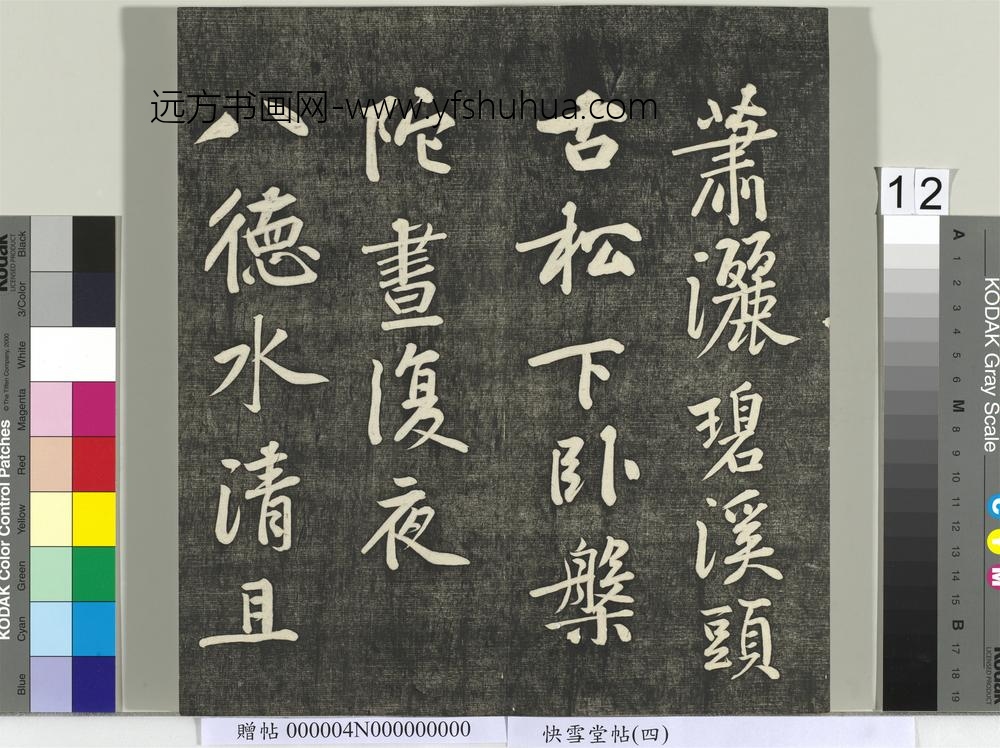 远方书画网-www.yfshuhua.com
蕭灑碧溪頭
古松下卧槃
陀晝復夜
八德水清且
12
KODAK Color Control Patches
© The Tiffen Company, 2000
Kodak
LICENSED PRODUCT
Blue
Cyan
Green
Yellow
Red
Magenta
White
3/Color
Black
KODAK Gray Scale
C
Y
M
Kodak
LICENSED PRODUCT
A 1 2 3 4 5 6 M 8 9 10 11 12 13 14 15 B 17 18 19
贈帖 000004N000000000
快雪堂帖(四)